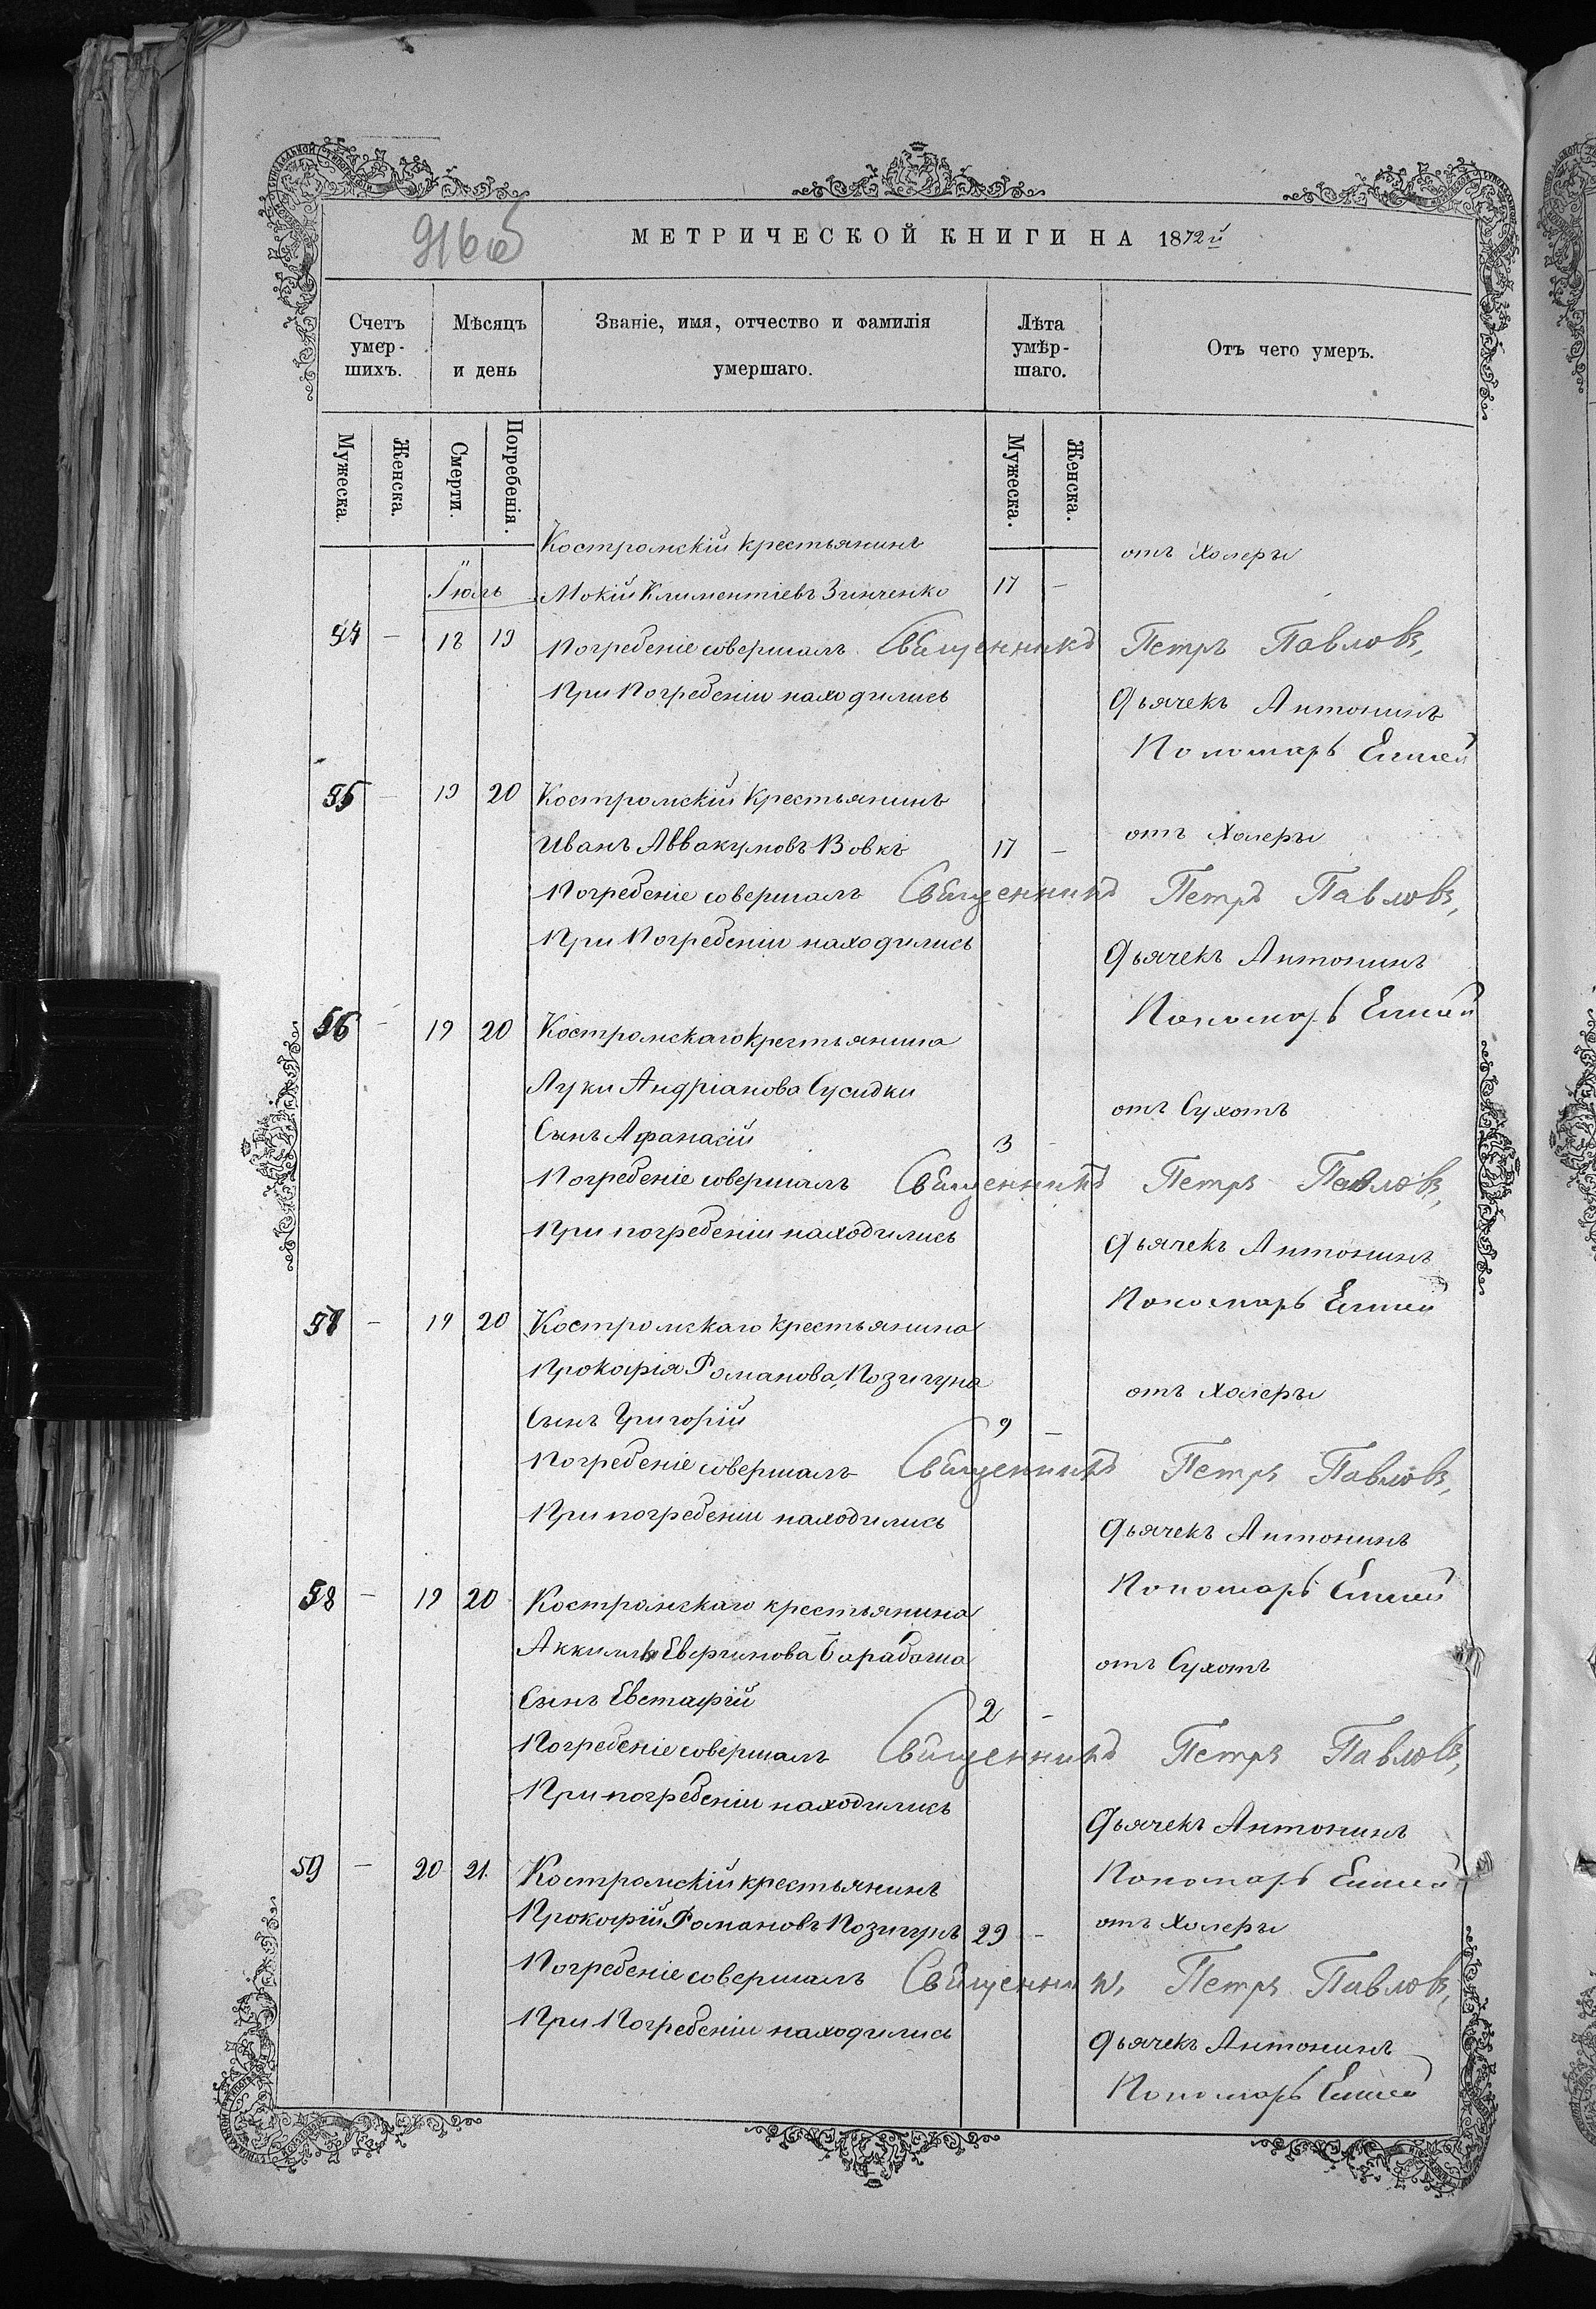 916об
МЕТРИЧЕСКОЙ КНИГИ НА 1872й
Счетъ умер-шихъ.
Мѣсяцъ и день
Званіе, имя, отчество и фамилія умершаго.
Лѣта умѣр-шаго.
Отъ чего умеръ.
Мужеска.
Женска.
Смерти.
Погребенія.
Мужеска.
Женска.
Костромскій крестьянинъ отъ холеры
Іюль Мокій Климентіевъ Зинченко 17 -
54 - 18 19 Погребеніе совершалъ Священникъ Петръ Павловъ,
При Погребеніи находились Дьячекъ Антонинъ
Пономарь
55 - 19 20 Костромскій Крестьянинъ
Иванъ Аввакумовъ Вовкъ 17 - отъ Холеры
Погребеніе совершалъ Священникъ Петръ Павловъ,
При Погребеніи находились Дьячекъ Антонинъ
Пономарь
56 - 19 20 Костромскаго Крестьянина
Луки Андріанова Сусидки отъ Сухотъ
Сынъ Афанасій 3 -
Погребеніе совершалъ Священникъ Петръ Павловъ,
При погребеніи находились Дьячекъ Антонинъ
Пономарь
- 19 20 Костромскаго Крестьянина
Прокофія Романова Позигуна отъ Холеры
Сынъ Григорій 9 -
Погребеніе совершалъ Священникъ Петръ Павловъ,
При погребеніи находились Дьячекъ Антонинъ
Пономарь
58 - 19 20 Костромскаго крестьянина
Евфимова Барабаша отъ Сухотъ
Сынъ Евстафій 2 -
Погребеніе совершалъ Священникъ Петръ Павловъ,
При погребеніи находились
Дьячекъ Антонинъ
59 - 20 21. Костромскій крестьянинъ Пономарь
Прокофій Романовъ Позигунъ 29 - отъ Холеры
Погребеніе совершалъ Священникъ Петръ Павловъ,
При Погребеніи находились Дьячекъ Антонинъ
Пономарь